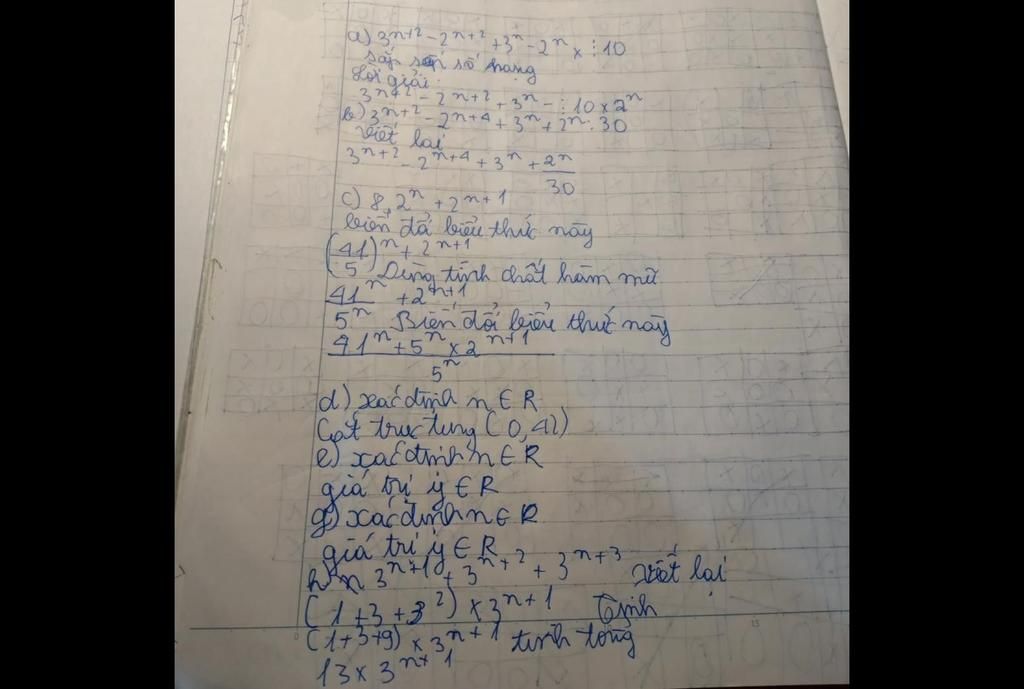 a) 3ⁿ⁺² - 2ⁿ⁺² + 3ⁿ - 2ⁿ × ⋮ 10
sắp số hạng
Lời giải
3ⁿ⁺² - 2ⁿ⁺² + 3ⁿ - ⋮ 10 × 2ⁿ
b) 3ⁿ⁺² - 2ⁿ⁺⁴ + 3ⁿ + 2ⁿ ⋮ 30
viết lại
3ⁿ⁺² - 2ⁿ⁺⁴ + 3ⁿ + 2ⁿ/30
c) 8,2ⁿ + 2ⁿ⁺¹
biến đổi biểu thức này
(41/5)ⁿ + 2ⁿ⁺¹
Dùng tính chất hàm mũ
41ⁿ/5ⁿ + 2ⁿ⁺¹
Biến đổi biểu thức này
41ⁿ + 5ⁿ × 2ⁿ⁺¹/5ⁿ
d) xác định n ∈ R
Cắt trục tung (0, 42)
e) xác định n ∈ R
giá trị y ∈ R
g) xác định n ∈ R
giá trị y ∈ R
h) 3ⁿ⁺¹ + 3ⁿ⁺² + 3ⁿ⁺³ viết lại
(1 + 3 + 3²) × 3ⁿ⁺¹ Tính
(1 + 3 + 9) × 3ⁿ⁺¹ tính tổng
13 × 3ⁿ⁺¹